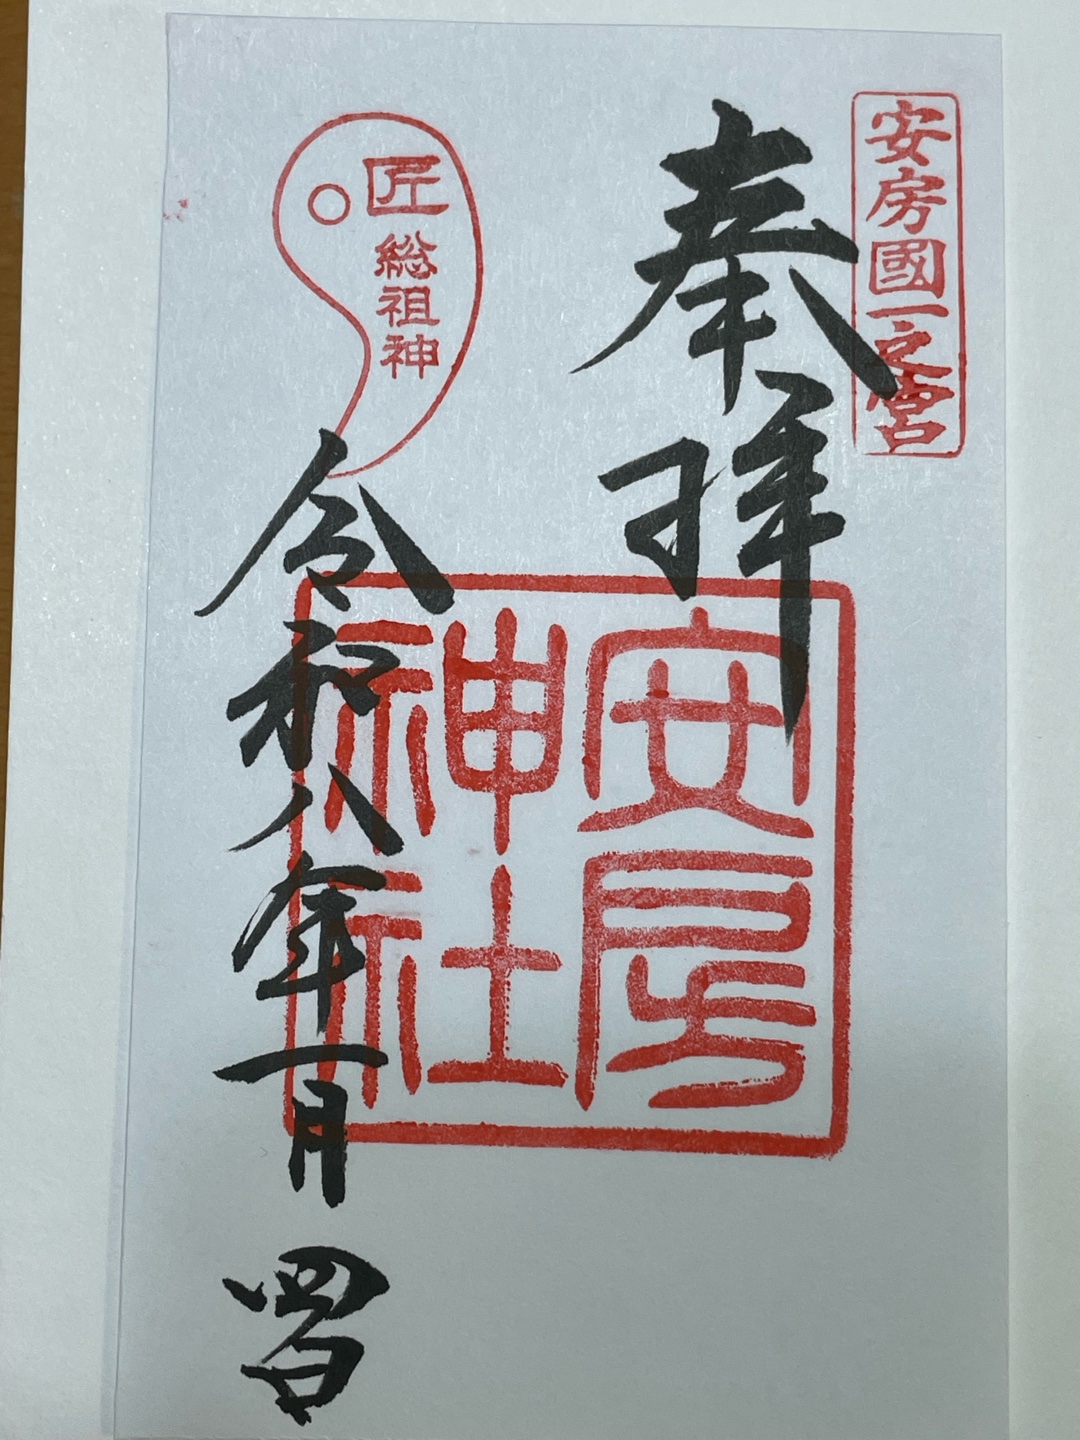 安房國一之宮
奉拝
安房
神社
匠
総祖神
令和八年一月四日